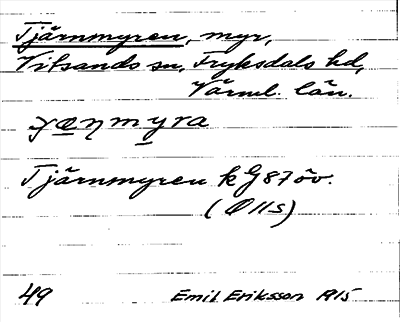 Tjärnmyren, myr,
Vitsands sn, Fryksdals hd,
Värml. län.
Tjärnmyren k G87öv.
49 Emil Eriksson 1915